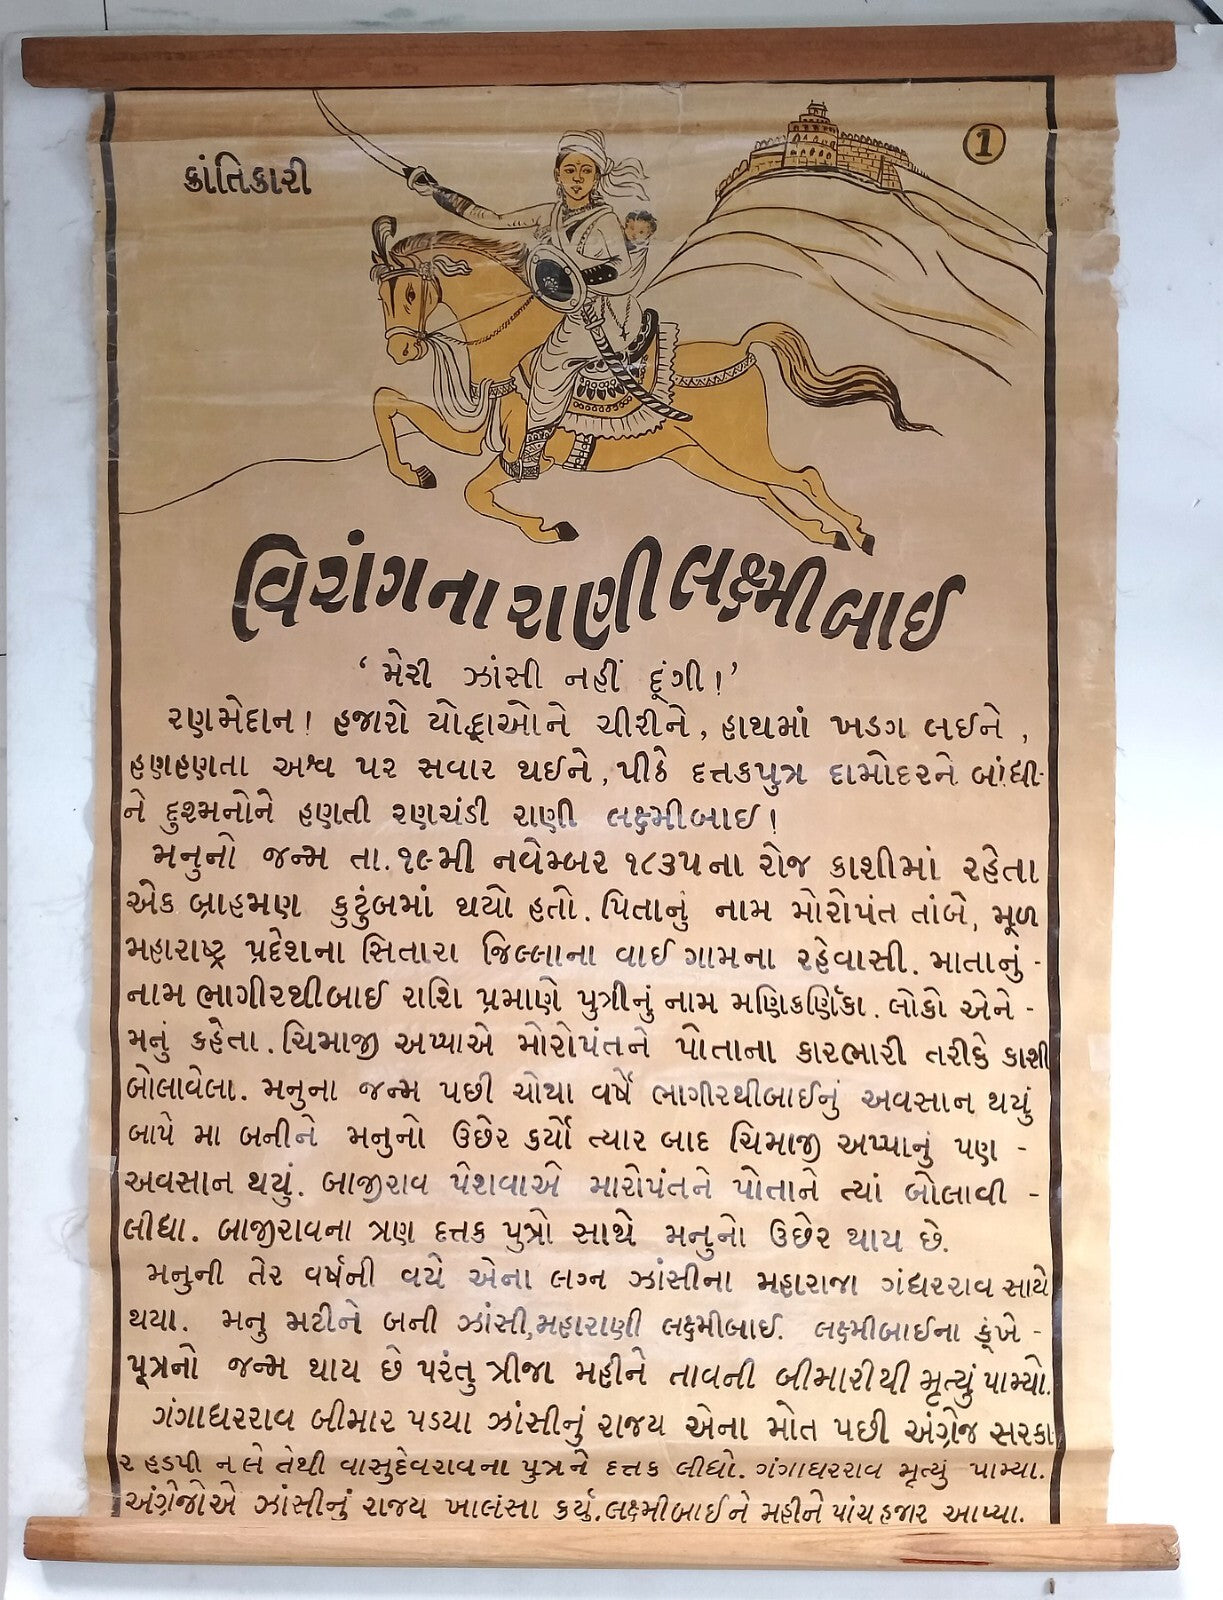 ક્રાંતિકારી
1
વિરાંગના રાણી લક્ષ્મીબાઈ
‘મેરી ઝાંસી નહીં દૂંગી!’
રણમેદાન! હજારો યોદ્ધાઓને ચીરીને, હાથમાં ખડગ લઈને,
હણહણતા અશ્વ પર સવાર થઈને, પીઠે દત્તકપુત્ર દામોદરને બાંધી-
ને દુશ્મનોને હણતી રણચંડી રાણી લક્ષ્મીબાઈ!
મનુનો જન્મ તા. ૧૯મી નવેમ્બર ૧૮૩૫ના રોજ કાશીમાં રહેતા
એક બ્રાહમણ કુટુંબમાં થયો હતો. પિતાનું નામ મોરોપંત તાંબે, મૂળ
મહારાષ્ટ્ર પ્રદેશના સિતારા જિલ્લાના વાઈ ગામના રહેવાસી. માતાનું -
નામ ભાગીરથીબાઈ રાશિ પ્રમાણે પુત્રીનું નામ મણિકર્ણિકા. લોકો એને -
મનું કહેતા. ચિમાજી અપ્પાએ મોરોપંતને પોતાના કારભારી તરીકે કાશી
બોલાવેલા. મનુના જન્મ પછી ચોથા વર્ષે ભાગીરથીબાઈનું અવસાન થયું
બાપે મા બનીને મનુનો ઉછેર કર્યો ત્યાર બાદ ચિમાજી અપ્પાનું પણ -
અવસાન થયું. બાજીરાવ પેશવાએ મારોપંતને પોતાને ત્યાં બોલાવી -
લીધા. બાજીરાવના ત્રણ દત્તક પુત્રો સાથે મનુનો ઉછેર થાય છે.
મનુની તેર વર્ષની વયે એના લગ્ન ઝાંસીના મહારાજા ગંધરરાવ સાથે
થયા. મનુ મટીને બની ઝાંસી, મહારાણી લક્ષ્મીબાઈ. લક્ષ્મીબાઈના કૂંખે -
પૂત્રનો જન્મ થાય છે પરંતુ ત્રીજા મહીને તાવની બીમારીથી મૃત્યું પામ્યો.
ગંગાધરરાવ બીમાર પડયા ઝાંસીનું રાજય એના મોત પછી અંગ્રેજ સરકા
ર હડપી ન લે તેથી વાસુદેવરાવના પુત્રને દત્તક લીધો. ગંગાધરરાવ મૃત્યું પામ્યા.
અંગ્રેજોએ ઝાંસીનું રાજય ખાલંસા કર્યું. લક્ષ્મીબાઈને મહીને પાંચ હજાર આપ્યા.